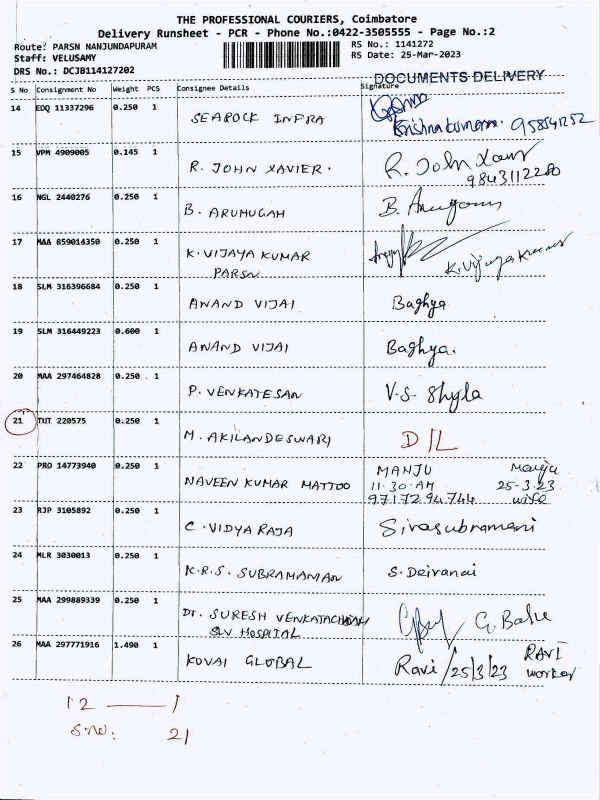 THE PROFESSIONAL COURIERS, Coimbatore
Delivery Runsheet - PCR - Phone No.:0422-3505555 - Page No.:2
Route: PARSN NANJUNDAPURAM RS No.: 1141272
Staff: VELUSAMY RS Date: 25-Mar-2023
DRS No.: DCJB114127202
DOCUMENTS DELIVERY
S No Consignment No Weight PCS Consignee Details Signature
14 EDQ 11337296 0.250 1 SEAROCK INFRA
Krishnakumar.
15 VPM 4909005 0.145 1 R. JOHN XAVIER. R. John Xavi
9843112280
16 NGL 2440276 0.250 1 B. ARUMUGAM B.
17 MAA 859014350 0.250 1 K. VIJAYA KUMAR K. Vijaya Kumar
PARSN
18 SLM 316396684 0.250 1 ANAND VIJAI Baghya
19 SLM 316449223 0.600 1 ANAND VIJAI Baghya.
20 MAA 297464828 0.250 1 P. VENKATESAN V.S. Shyla
21 TUT 220575 0.250 1 M. AKILANDESWARI D/L
22 PRO 14773940 0.250 1 NAVEEN KUMAR MATTOO MANJU Manju
11.30 AM 25-3.23
9717294744 wife
23 RJP 3105892 0.250 1 C. VIDYA RAJA Sivasubramani
24 MLR 3030013 0.250 1 K.R.S. SUBRAMANIAN S. Deivanai
25 MAA 299889339 0.250 1 DT. SURESH VENKATACHALAM G.
SLV. HOSPITAL
26 MAA 297771916 1.490 1 KOVAI GLOBAL Ravi /25/3/23 RAVI
worker
12 — 1
S.no: 21